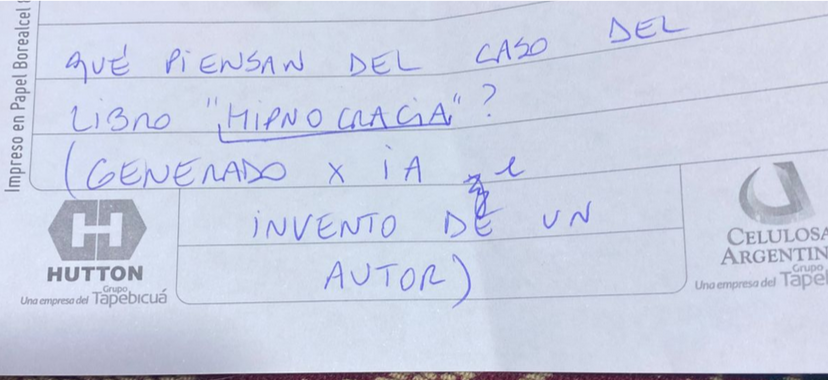 Impreso en Papel Borealcel
QUÉ PIENSAN DEL CASO DEL
LIBRO "HIPNOCRACIA"?
(GENERADO X iA e
INVENTO DE UN
AUTOR)
HUTTON
Grupo
Una empresa del Tapebicuá
CELULOSA
ARGENTIN
Grupo
Una empresa del Tape